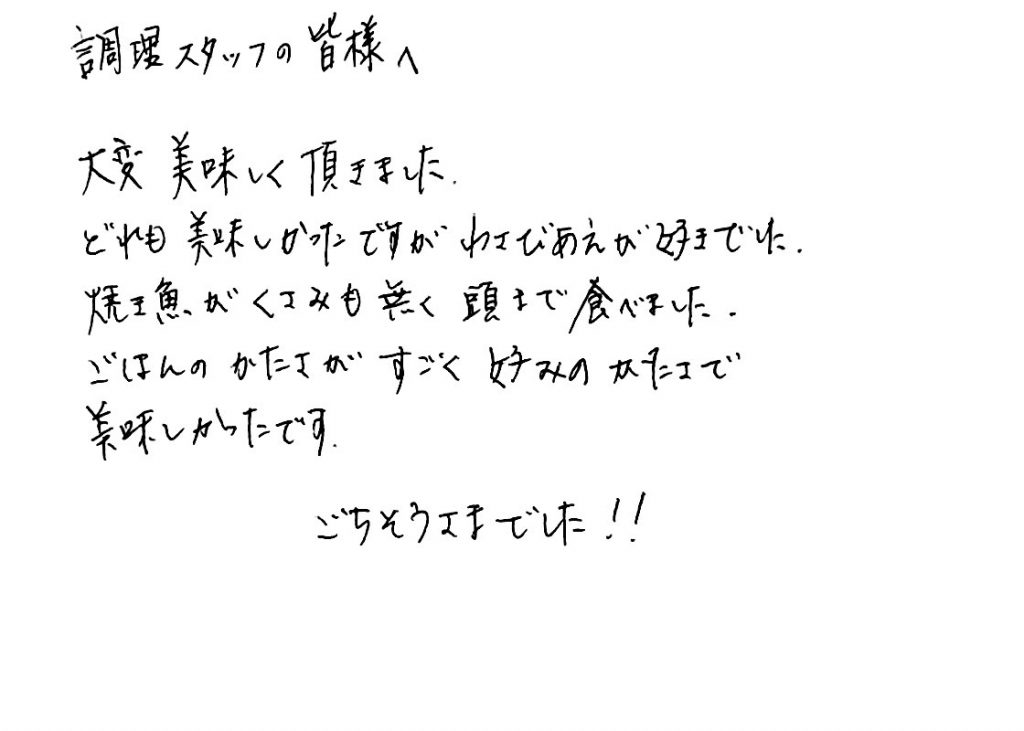 調理スタッフの皆様へ
大変美味しく頂きました.
どれも美味しかったですがわさびあえが好きでした.
焼き魚がくさみも無く頭まで食べました.
ごはんのかたさがすごく好みのかたさで
美味しかったです.
ごちそうさまでした!!